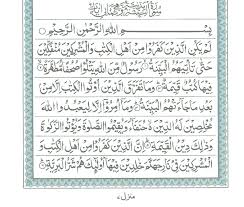 بِسْمِ اللهِ الرَّحْمٰنِ الرَّحِيْمِ
لَمْ يَكُنِ الَّذِيْنَ كَفَرُوْا مِنْ اَهْلِ الْكِتٰبِ وَالْمُشْرِكِيْنَ مُنْفَكِّيْنَ
حَتّٰى تَاْتِيَهُمُ الْبَيِّنَةُ رَسُوْلٌ مِّنَ اللهِ يَتْلُوْا صُحُفًا مُّطَهَّرَةً
فِيْهَا كُتُبٌ قَيِّمَةٌ وَمَا تَفَرَّقَ الَّذِيْنَ اُوْتُوا الْكِتٰبَ اِلَّا مِنْ
بَعْدِ مَا جَآءَتْهُمُ الْبَيِّنَةُ وَمَآ اُمِرُوْٓا اِلَّا لِيَعْبُدُوا اللهَ
مُخْلِصِيْنَ لَهُ الدِّيْنَ حُنَفَآءَ وَيُقِيْمُوا الصَّلٰوةَ وَيُؤْتُوا الزَّكٰوةَ
وَذٰلِكَ دِيْنُ الْقَيِّمَةِ اِنَّ الَّذِيْنَ كَفَرُوْا مِنْ اَهْلِ الْكِتٰبِ وَ
الْمُشْرِكِيْنَ فِيْ نَارِ جَهَنَّمَ خٰلِدِيْنَ فِيْهَا اُولٰٓئِكَ هُمْ شَرُّ الْبَرِيَّةِ
منزل ۷